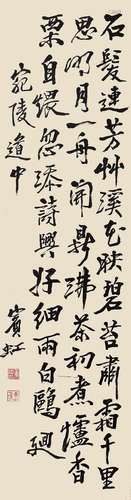 石髮連芳艸溪毛映碧苔肅霜千里
思明月一舟開鼎沸茶初煮爐香
栗自煨忽添詩興好細雨白鷗迴
宛陵道中
賓虹